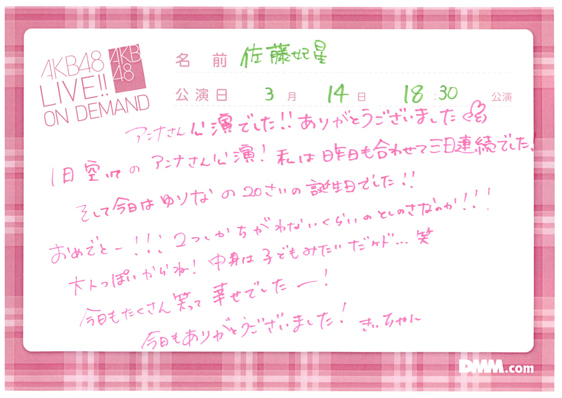 AKB48
LIVE!!
ON DEMAND
AKB
48
名 前 佐藤妃星
公演日 3月 14日 18:30 公演
アンナさん公演でした!!ありがとうございました
1日空いてのアンナさん公演!私は昨日も合わせて三日連続でした!
そして今日はゆりなの20さいの誕生日でした!!
おめでとー!!!2つしかちがわないくらいのとしのさなのか!!!
大人っぽいからね!中身は子どもみたいだケド…笑
今日もたくさん笑って幸せでしたー!
今日もありがとうございました! きぃちゃん
DMM.com